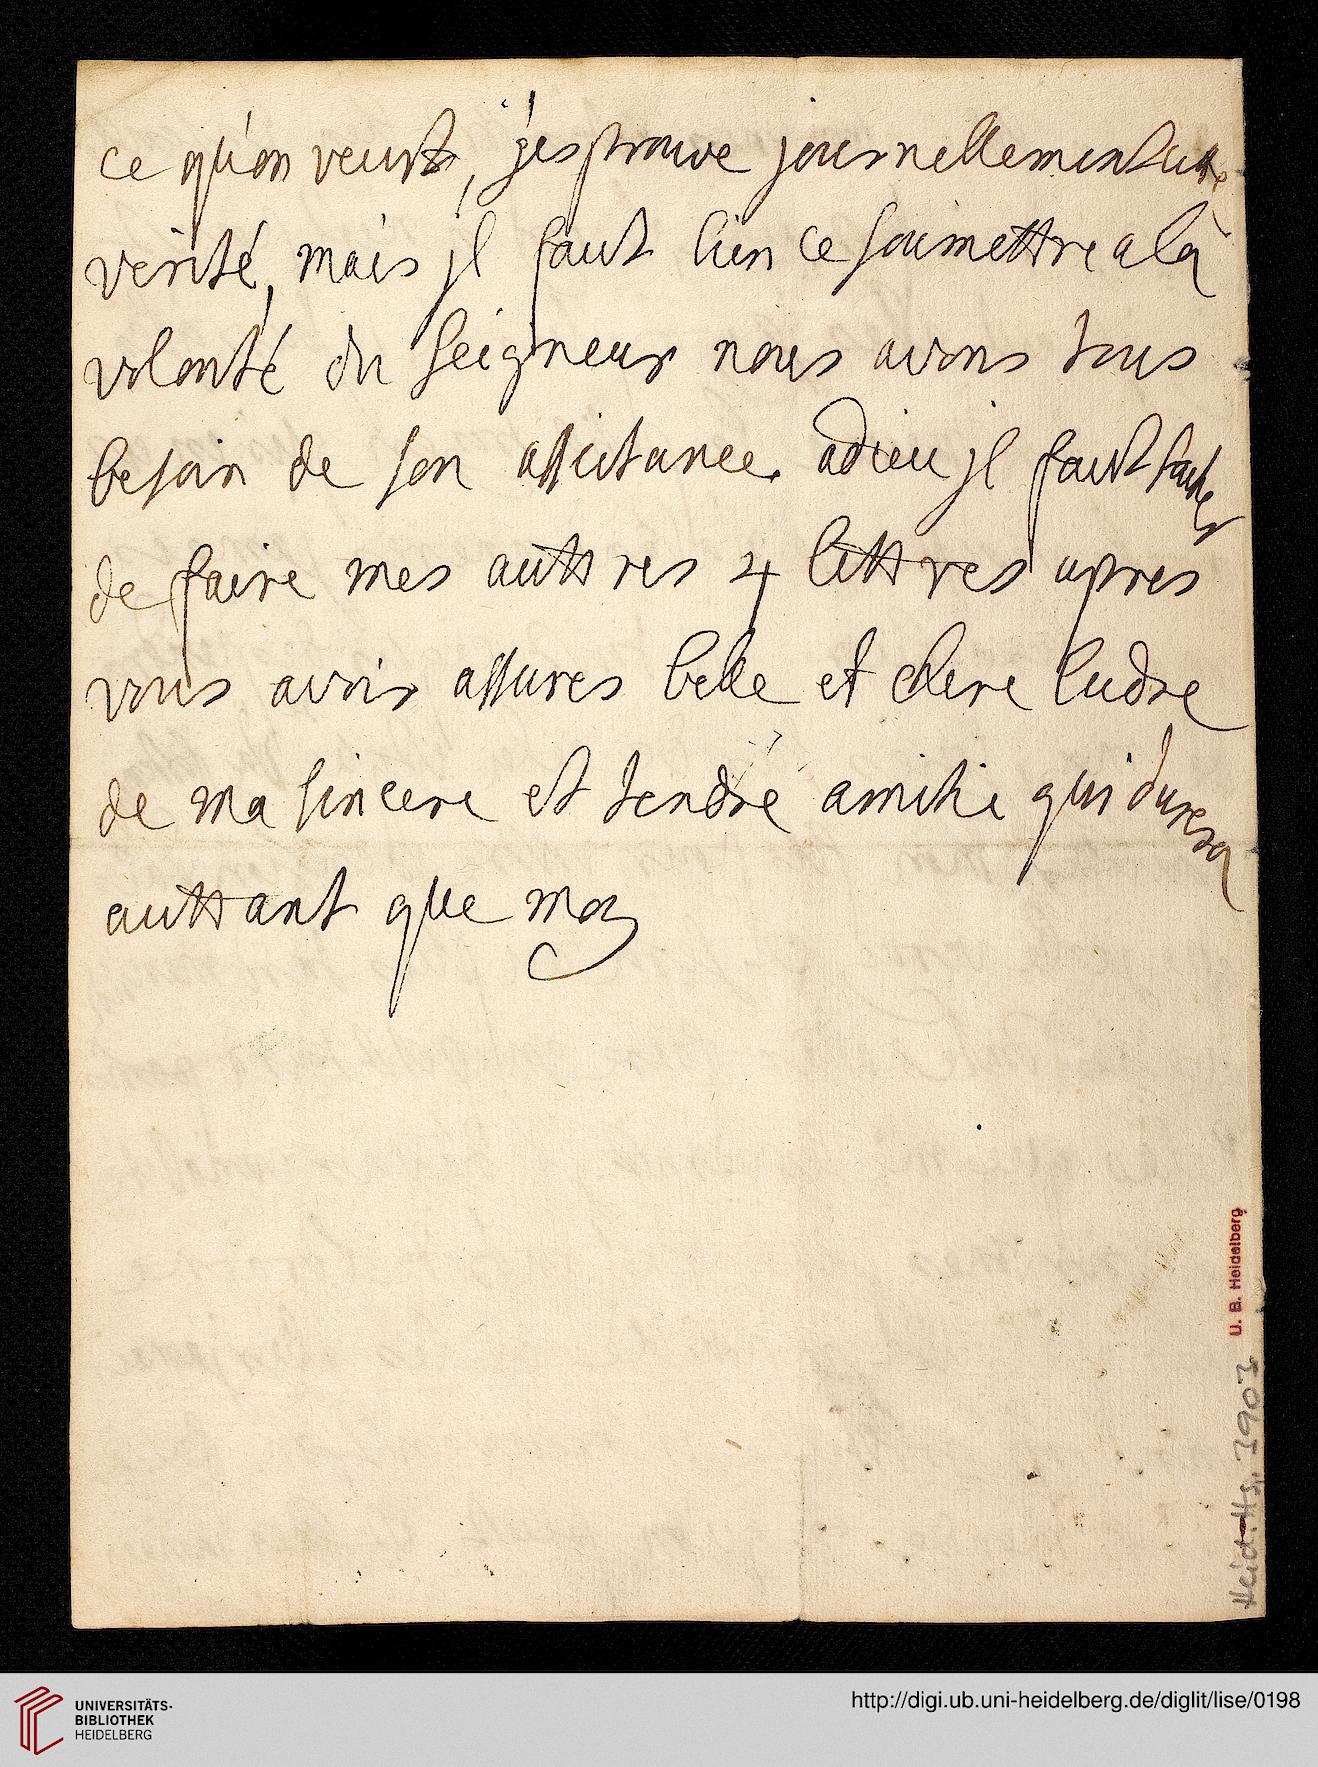 ce qu'on veust, j'esprouve journellement cette
verité, mais jl faut bien ce soumettre a la
volonté du seigneur nous avons tous
besoin de son assistance. adieu jl faut tacher
de faire mes auttres 4 lettres apres
vous avoir assures belle et chere ludre
de ma sincere et tendre amitie qui durera
auttant que moy
U. B. Heidelberg
Heid. Hs. 3903
UNIVERSITÄTS-
BIBLIOTHEK
HEIDELBERG
http://digi.ub.uni-heidelberg.de/diglit/lise/0198